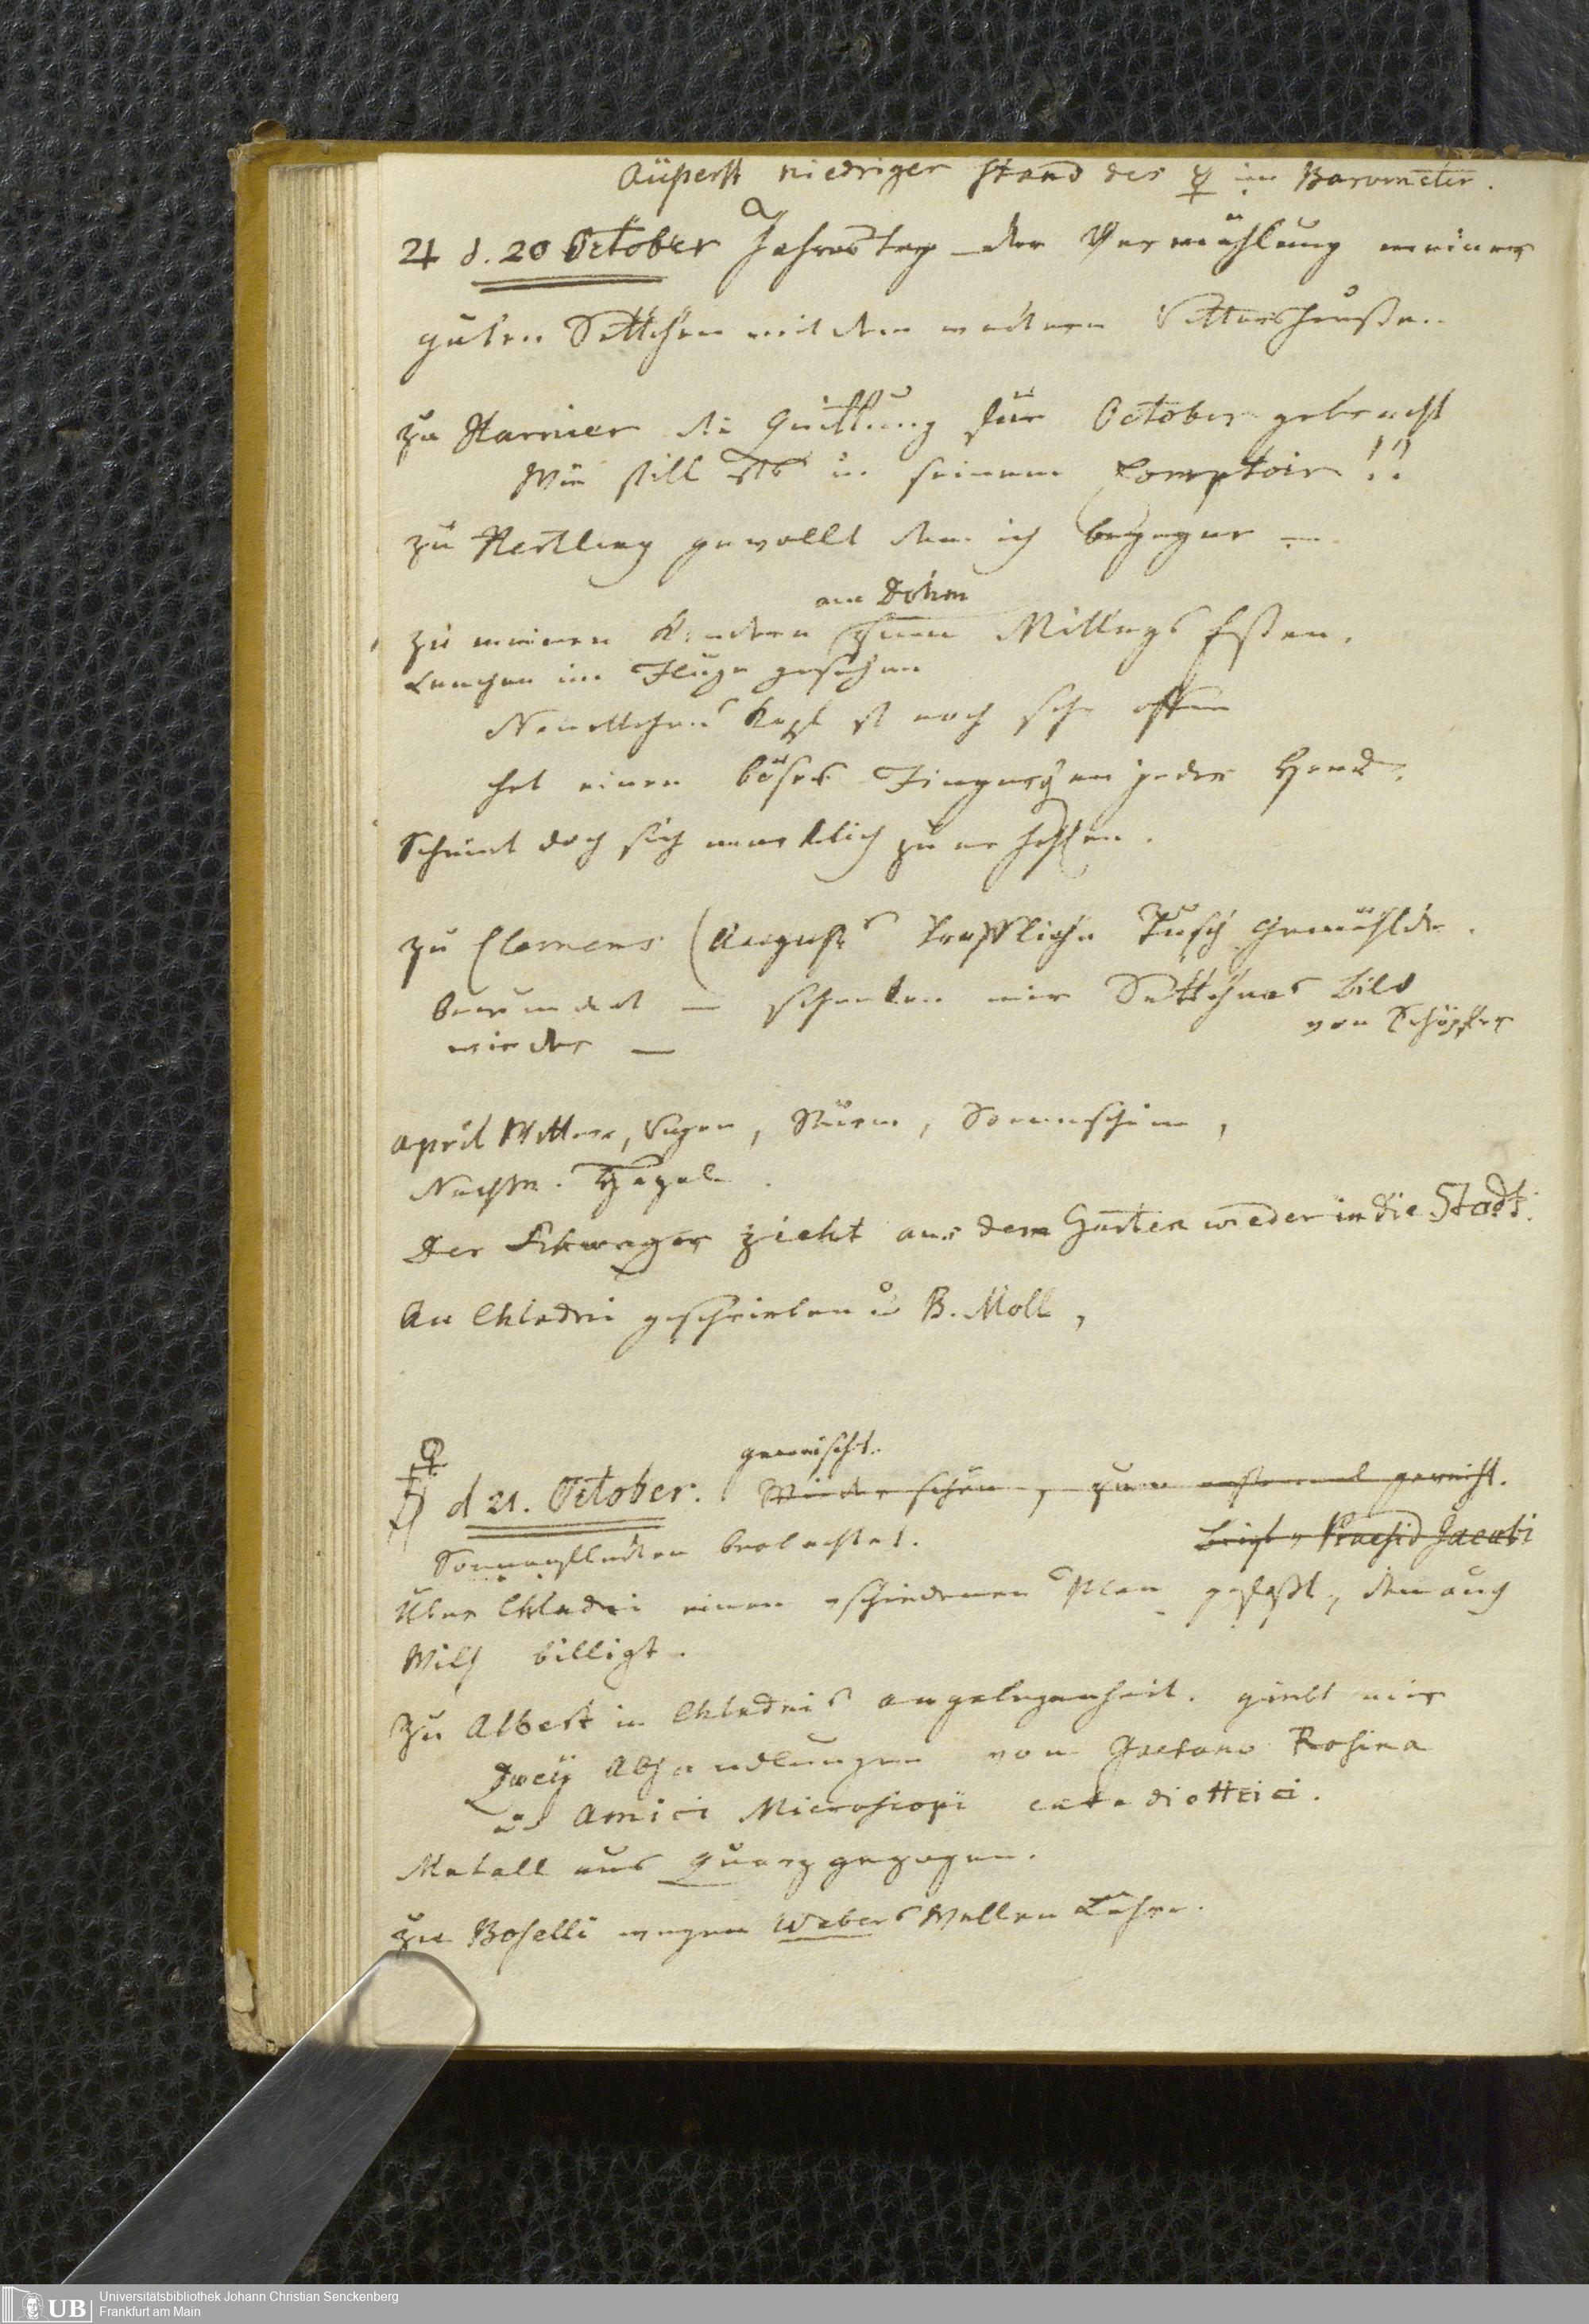 Aüßerst niedriger Stand des ☿ im Barometer.
♃ d. 20 October Jahrestag der Vermählung meines
guten Settchen mit dem wackeren Rittershaußen
zu Harnier die Quittung für October gebracht
Wie still ists in seinem Comptoir!!
zu Hertling gewollt dem ich begegne —
am Dohm
zu meinen Kindern zum Mittags Essen.
Lenchen im Fluge gesehen
Nanettchens Kopf ist noch sehr offen
hat einen bösen Finger an jeder Hand.
Scheint doch sich merklich zu erhohlen.
zu Clemens (Augusts treffliche Tusch Gemählde
bewundert — schenken mir Settchens Bild
von Schöpfer
wieder —
April Wetter, Regen, Sturm, Sonnenschein,
Nachts. Hagel.
Der Schwager zieht aus dem Garten wieder in die Stadt.
An Chladni geschrieben u B. Moll,
♀
d 21. October.
gemischt.
Wieder schön, zum erstenmal gereist.
Sonnenflecken beobachtet.
Praesid Jacobi
Über Chladni einen eschiedenen Plan gefaßt, den auch
Wilh billigt.
Zu Albert in Chladnis angelegenheit. giebt mir
Zwey Abhandlungen von Gaetano Rosina
und Amici Microscopi catadiottrici.
Metall aus Quarz gezogen.
zu Boselli wegen Webers Wellen Lehre.
Universitätsbibliothek Johann Christian Senckenberg
Frankfurt am Main
UB